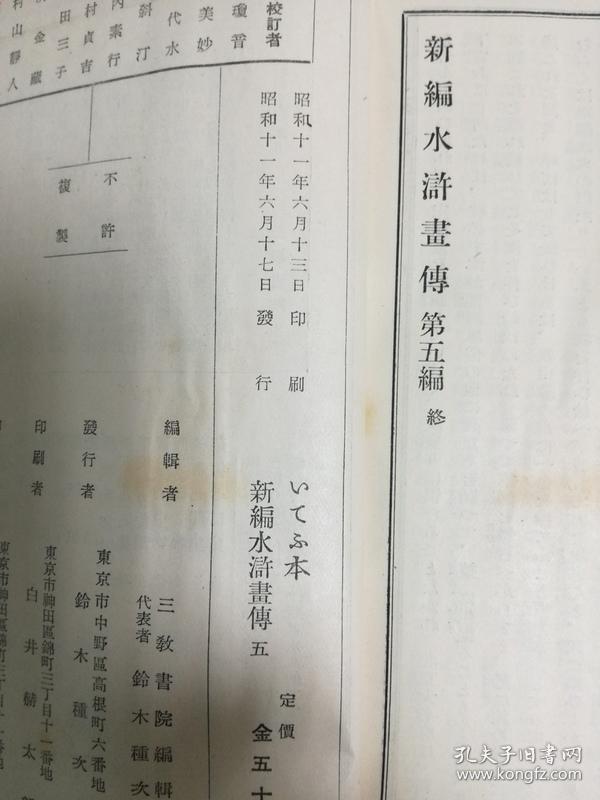 新編水滸畫傳 第五編 終
昭和十一年六月十三日印刷
昭和十一年六月十七日發行
いてふ本
新編水滸畫傳 五
定價
金五十
校訂者
瓊音
美妙
代水
斜汀
內素行
村貞吉
田三子
金藏
村山靜人
不許
複製
編輯者
三敎書院編輯
代表者 鈴木種次
發行者
東京市中野區高根町六番地
鈴木種次
印刷者
東京市神田區錦町三丁目十一番地
白井赫太郎
東京市神田區錦町三丁目十一
孔夫子旧书网
www.kongfz.com